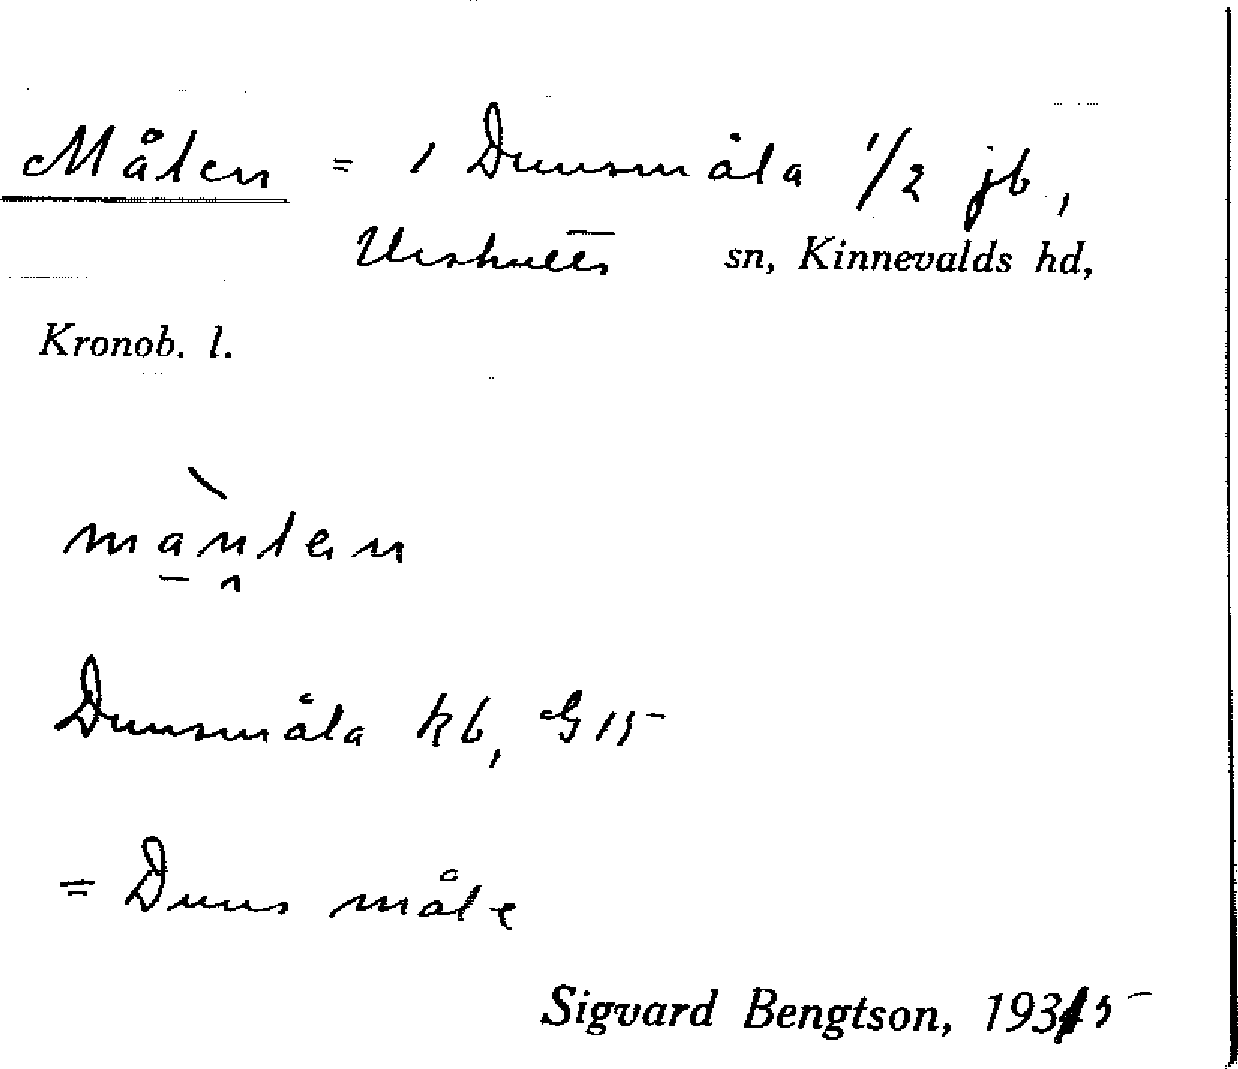 Målen = 1 Dunsmåla 1/2 jb,
Urshults sn, Kinnevalds hd,
Kronob. l.
Dunsmåla kb, G 15
= Duns måla
Sigvard Bengtson, 1935